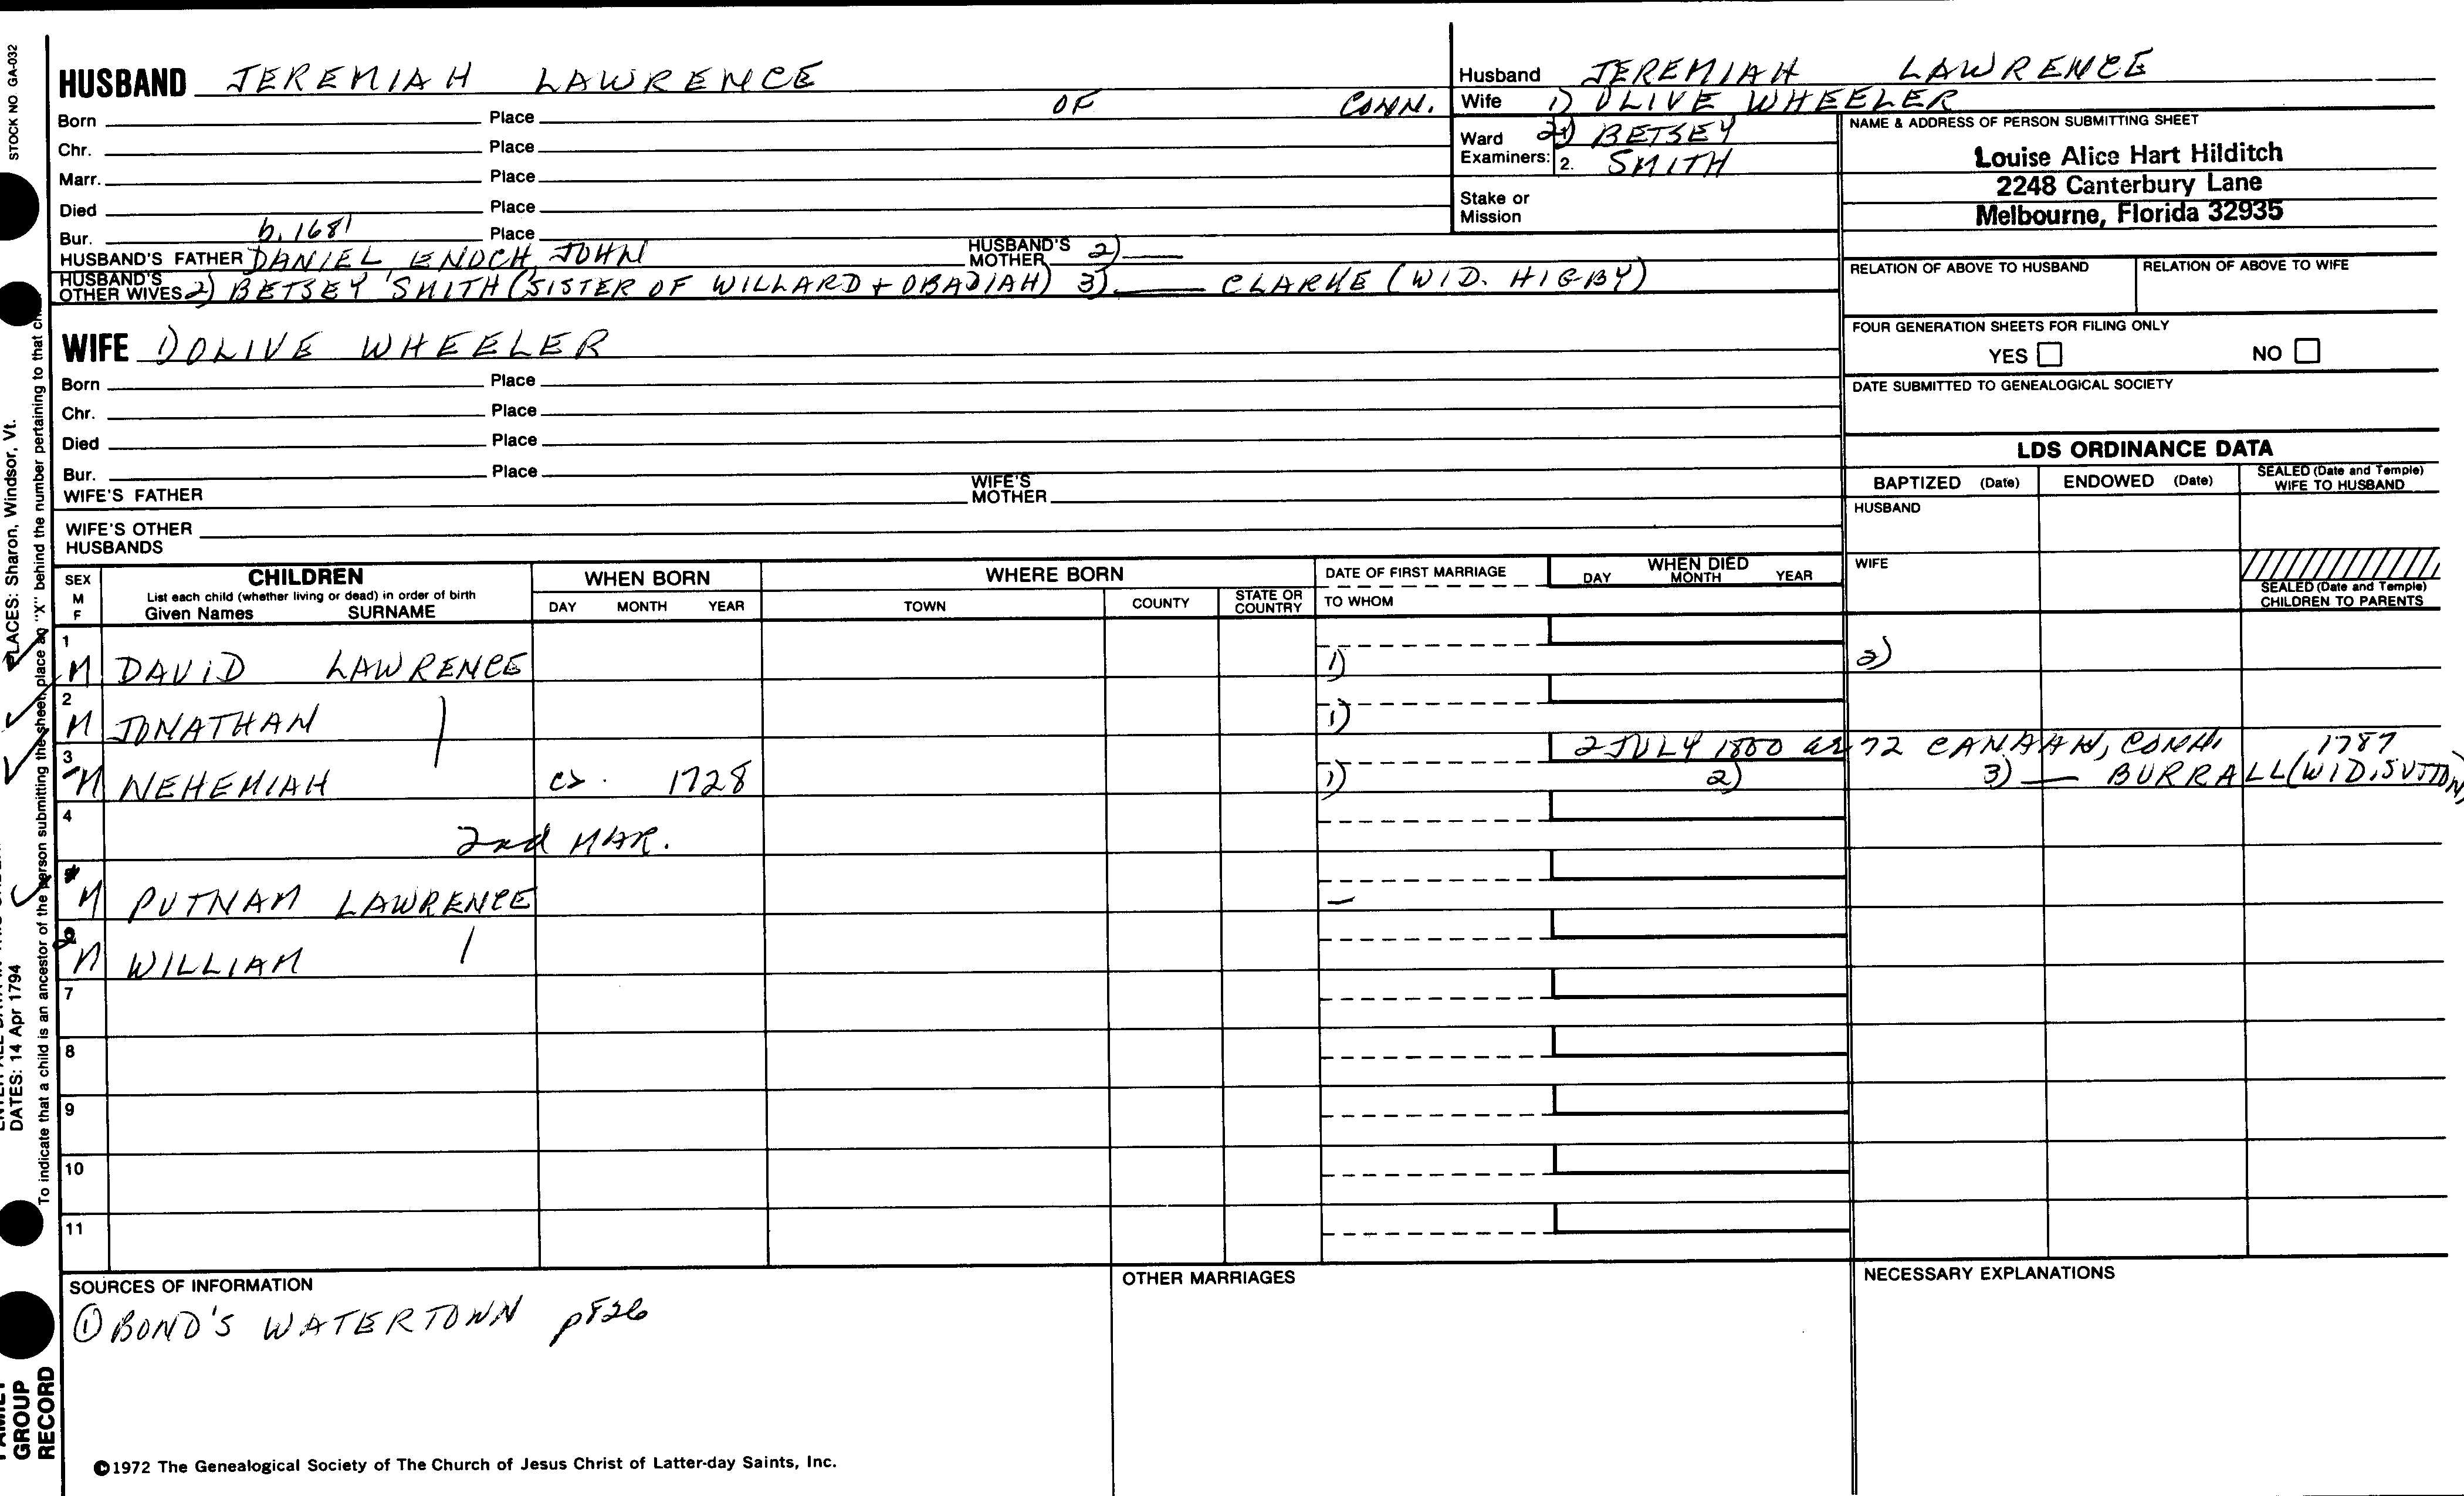 HUSBAND JEREMIAH LAWRENCE
Born Place OF CONN.
Chr. Place
Marr. Place
Died Place
Bur. b. 1681 Place
HUSBAND'S FATHER DANIEL ENOCH JOHN HUSBAND'S MOTHER 2) —
HUSBAND'S OTHER WIVES 2) BETSEY SMITH (SISTER OF WILLARD + OBADIAH) 3) — CLARKE (WID. HIGBY)
WIFE 1) OLIVE WHEELER
Born Place
Chr. Place
Died Place
Bur. Place
WIFE'S FATHER WIFE'S MOTHER
WIFE'S OTHER HUSBANDS
Husband JEREMIAH LAWRENCE
Wife 1) OLIVE WHEELER
Ward 2) BETSEY
Examiners: 2. SMITH
Stake or Mission
NAME & ADDRESS OF PERSON SUBMITTING SHEET
Louise Alice Hart Hilditch
2248 Canterbury Lane
Melbourne, Florida 32935
RELATION OF ABOVE TO HUSBAND RELATION OF ABOVE TO WIFE
FOUR GENERATION SHEETS FOR FILING ONLY
YES NO
DATE SUBMITTED TO GENEALOGICAL SOCIETY
LDS ORDINANCE DATA
BAPTIZED (Date) ENDOWED (Date) SEALED (Date and Temple) WIFE TO HUSBAND
HUSBAND
WIFE
SEALED (Date and Temple) CHILDREN TO PARENTS
SEX M F CHILDREN List each child (whether living or dead) in order of birth Given Names SURNAME
WHEN BORN DAY MONTH YEAR
WHERE BORN TOWN COUNTY STATE OR COUNTRY
DATE OF FIRST MARRIAGE TO WHOM
WHEN DIED DAY MONTH YEAR
1 M DAVID LAWRENCE 1) 2)
2 M JONATHAN 1)
2 JULY 1800 ae 72 CANAAN, CONN. 1787
3 M NEHEMIAH ca. 1728 1) 2) 3) — BURRALL (WID. SUTTON)
4
2nd MAR.
M PUTNAM LAWRENCE —
2 M WILLIAM
7
8
9
10
11
SOURCES OF INFORMATION
① BOND'S WATERTOWN p826
OTHER MARRIAGES
NECESSARY EXPLANATIONS
©1972 The Genealogical Society of The Church of Jesus Christ of Latter-day Saints, Inc.
STOCK NO GA-032
PLACES: Sharon, Windsor, Vt.
DATES: 14 Apr 1794
To indicate that a child is an ancestor of the person submitting the sheet, place an "X" behind the number pertaining to that
GROUP
RECORD